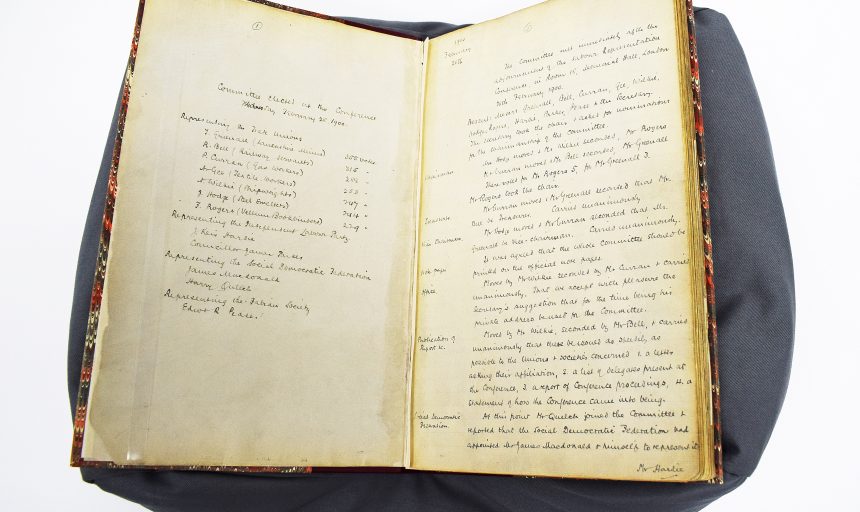 1
Committee elected at the Conference
Wednesday, February 28, 1900.
Representing the Trade Unions
T. Greenall (Lancashire Miners) 355 votes
R. Bell (Railway Servants) 315 "
P. Curran (Gas Workers)
A. Gee (Textile Workers)
A. Wilkie (Shipwrights) 252 "
J. Hodge (Steel Smelters)
F. Rogers (Vellum Bookbinders) 279 "
Representing the Independent Labour Party
J. Keir Hardie
Councillor James Parker
Representing the Social Democratic Federation
James Macdonald
Harry Quelch
Representing the Fabian Society
Edward R. Pease.
1900
February
The Committee met immediately after the
adjournment of the Labour Representation
Conference, in Room 15, Memorial Hall, London
February, 1900.
Present, Messrs Greenall, Bell, Curran, Gee, Wilkie,
Hodge, Rogers, Hardie, Parker, Pease & the Secretary.
The Secretary took the chair & asked for nominations
for the chairmanship of the Committee.
Mr Hodge moved & Mr Wilkie seconded, Mr Rogers
Mr Curran moved & Mr Bell seconded, Mr Greenall
There voted for Mr Rogers 5, for Mr Greenall 3.
Mr Rogers took the chair.
Mr Curran moved & Mr Greenall seconded that Mr.
Treasurer.
Bell be Treasurer. Carried unanimously
Mr Hodge moved & Mr Curran seconded that Mr.
Vice Chairman.
Greenall be Vice-chairman. Carried unanimously.
It was agreed that the whole Committee should be
Note paper
printed on the official note paper.
Office.
Moved by Mr Wilkie seconded by Mr Curran & carried
unanimously, That we accept with pleasure the
Secretary's suggestion that for the time being his
private address be used for the Committee.
Moved by Mr. Wilkie, seconded by Mr Bell, & carried
Publication of
Report &c.
unanimously that there be issued as speedily as
possible to the Unions & societies concerned 1. a letter
asking their affiliation, 2. a list of delegates present at
the Conference, 3. a report of Conference proceedings, 4. a
statement of how the Conference came into being.
Social Democratic
Federation.
At this point Mr Quelch joined the Committee &
reported that the Social Democratic Federation had
appointed Mr James Macdonald & himself to represent it
Mr Hardie